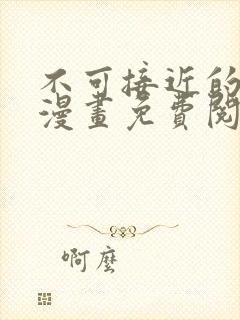 不可接近的
漫畫免費閱
啊麼